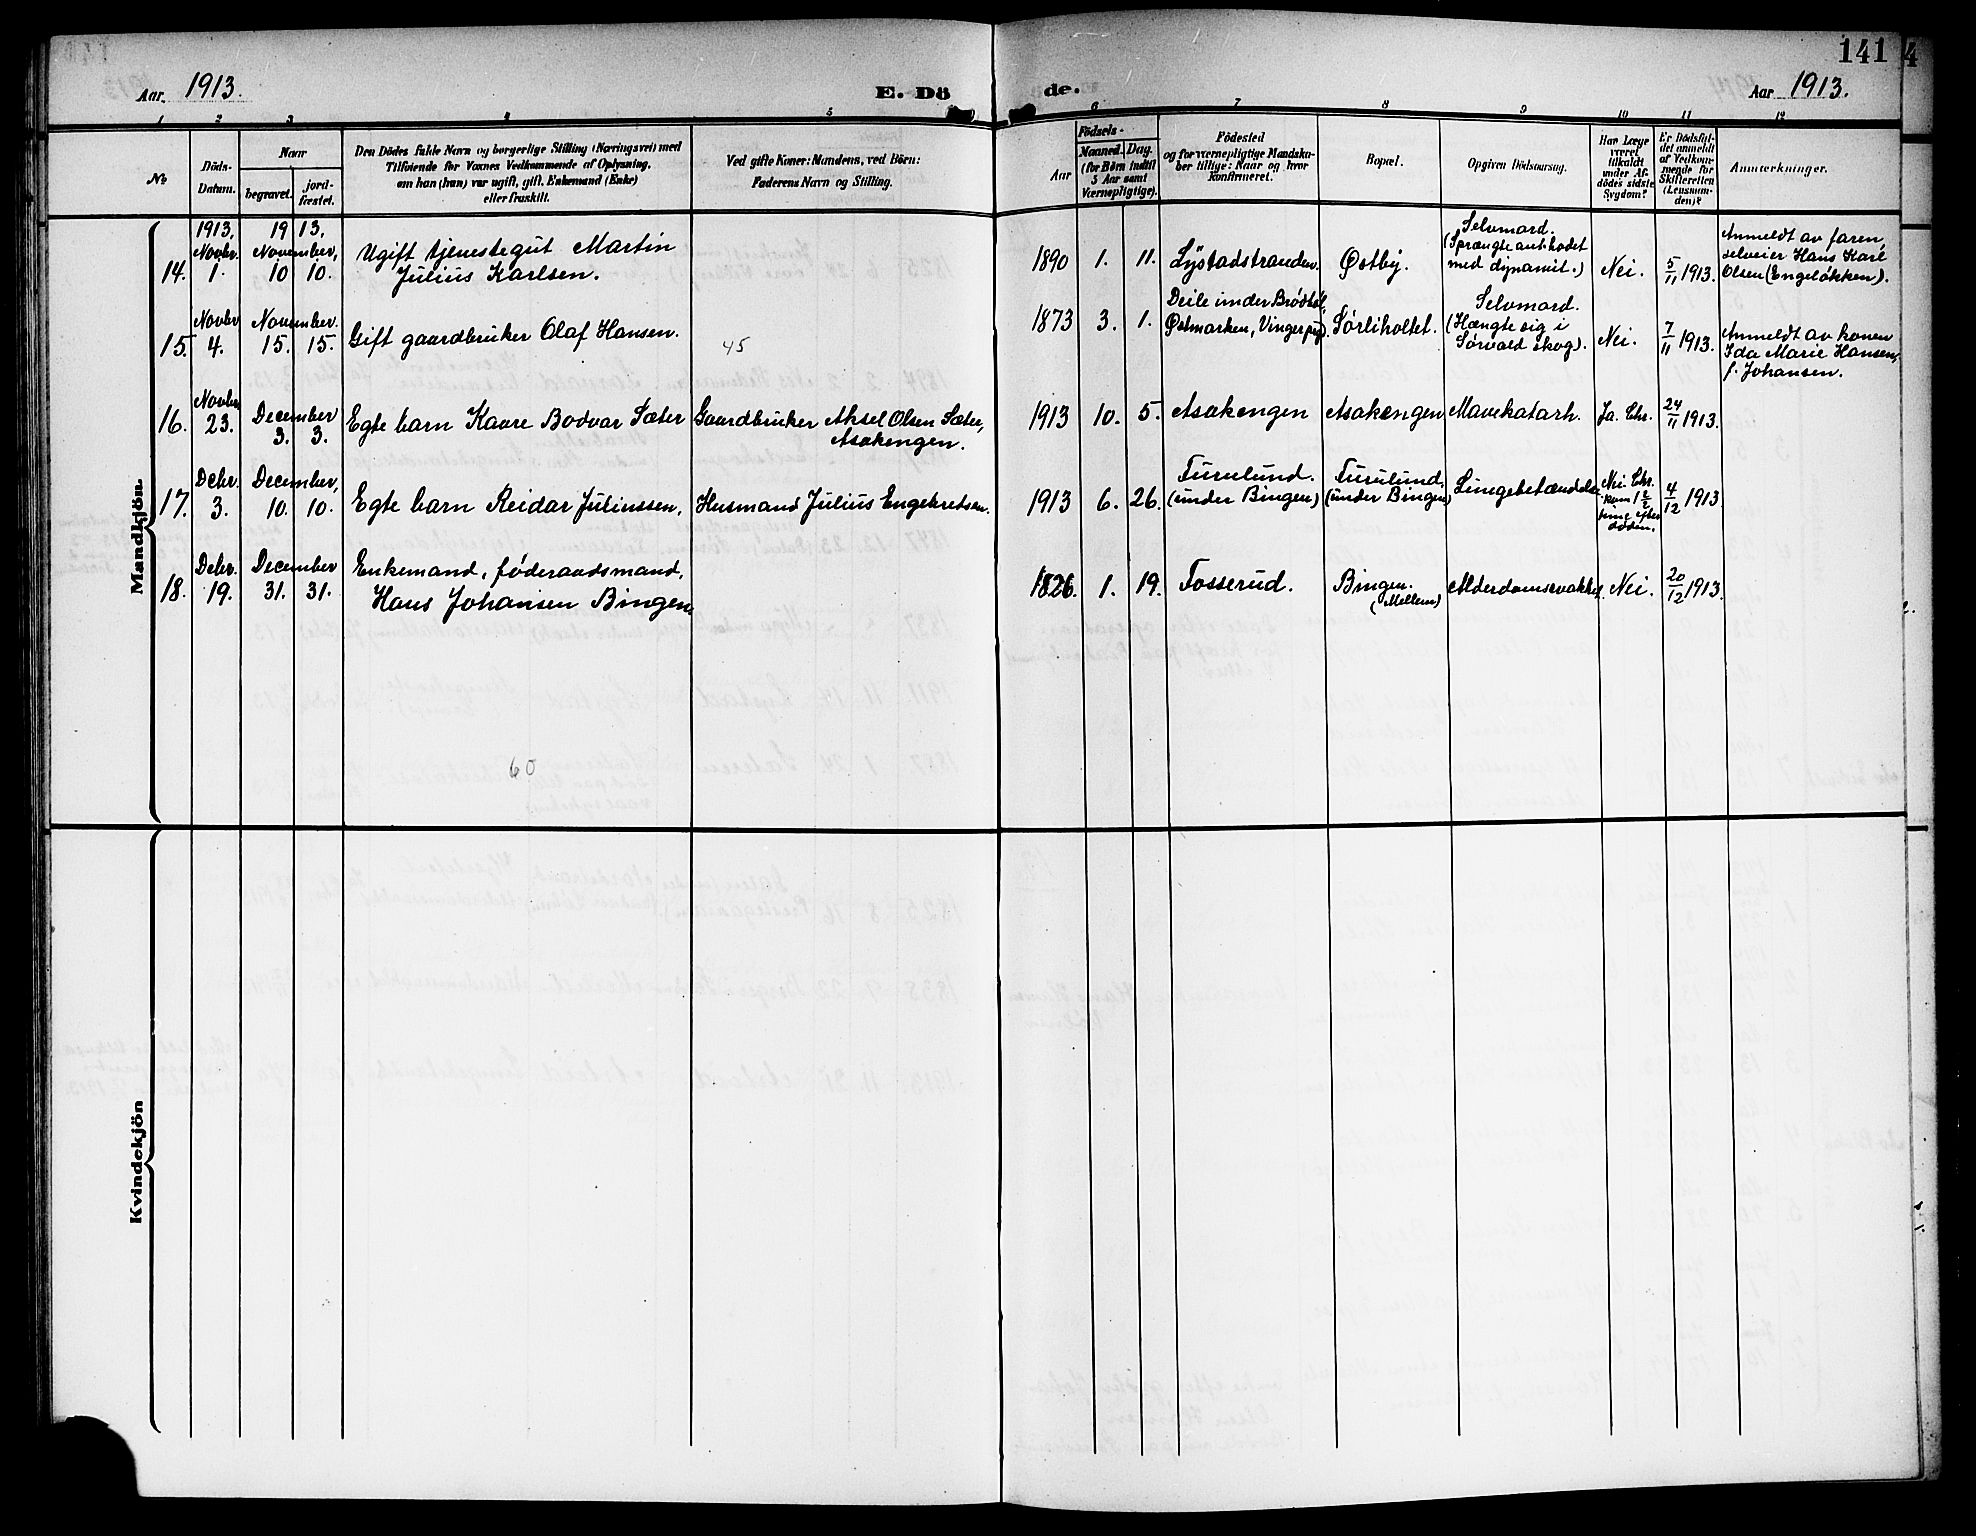 141
4
Aar 1913.
E. Dö
de.
Aar 1913.
1 2 3 4 5 6 7 8 9 10 11 12
№
Döds-
Datum.
Naar
begravet.
jord-
fæstet.
Den Dödes fulde Navn og borgerlige Stilling (Næringsvei) med
Tilföiende for Voxnes Vedkommende af Oplysning,
om han (hun) var ugift, gift, Enkemand (Enke)
eller fraskilt.
Ved gifte Koner: Mandens, ved Börn:
Faderens Navn og Stilling.
Födsels-
Aar
Maaned. Dag.
(for Börn indtil
5 Aar samt
Værnepligtige).
Födested
og for værnepligtige Mandska-
ber tillige: Naar og hvor
konfirmeret.
Bopæl.
Opgiven Dödsaarsag.
Har Læge
været
tilkaldt
under Af-
dödes sidste
Sygdom?
Er Dödsfal-
det anmeldt
af Vedkom-
mende for
Skifteretten
(Lensman-
den)?
Anmærkninger.
Mandkjön.
14.
1913,
Novbr.
1.
1913,
November,
10 10.
Ugift tjenestegut Martin
Julius Karlsen.
1890 1. 11.
Lystadstranden.
Østby.
Selvmord.
(Sprængte aut hodet
med dynamit.)
Nei.
5/11 1913.
Anmeldt av faren,
selveier Hans Karl
Olsen (Engeløkken).
15.
Novbr
4.
November.
15. 15.
Gift gaardbruker Olaf Hansen.
45
1873 3. 1.
Deile under Brødbøl,
Østmarken, Vingerpgj.
Sørliholtet.
Selvmord.
(Hængte sig i
Sørvald skog).
Nei.
7/11 1913.
Anmeldt av konen
Ida Marie Hansen,
f. Johansen.
16.
Novbr
23.
December
3. 3.
Egte barn Kaare Bodvar Sæter
Gaardbruker Aksel Olsen Sæter,
Asakengen.
1913 10. 5.
Asakengen
Asakengen
Mavekatarh.
Ja. Chr.
24/11 1913.
17.
Debr.
3.
December,
10. 10.
Egte barn Reidar Juliussen,
Husmand Julius Engebretsen.
1913 6. 26.
Furulund.
(under Bingen)
Furulund.
(under Bingen)
Lungebetændelse
Nei Chr.
kom 1/2
time efter
døden.
4/12 1913
18.
Debr.
19.
December
31. 31.
Enkemand, føderaadsmand,
Hans Johansen Bingen.
1826. 1. 19.
Fosserud.
Bingen.
(Mellem)
Alderdomssvakhet.
Nei.
20/12 1913.
60
Kvindekjön